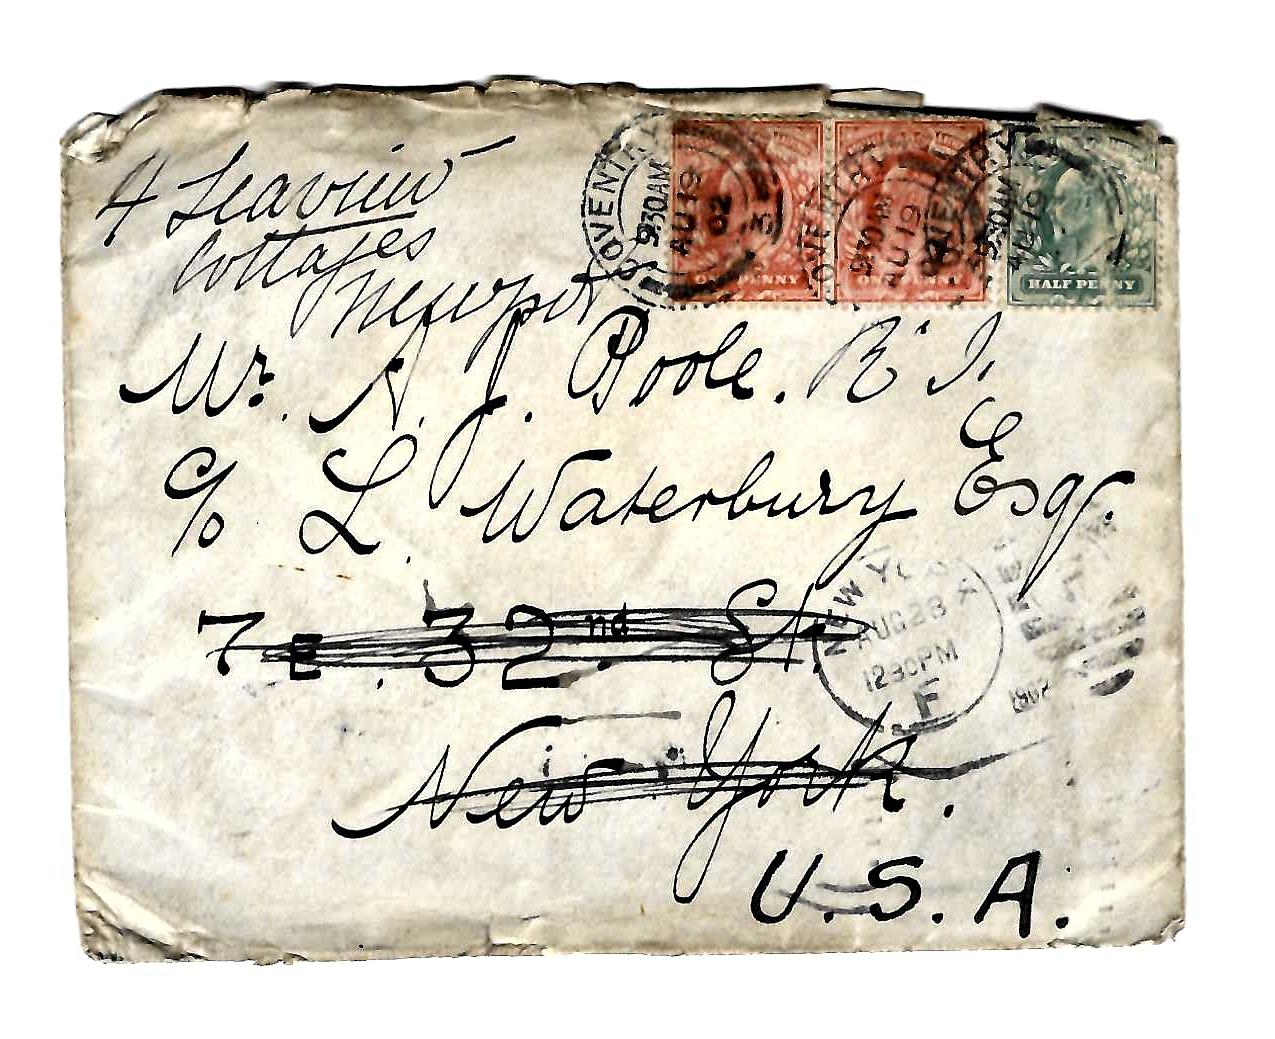 4 Seaview
Cottages
Newport
Mr. A. J. Poole. R. I.
c/o L. Waterbury Esqr.
7 E. 32nd St.
New York.
U. S. A.
COVENTRY
9.30AM
AU 19
02
ONE PENNY
COVENTRY
9.30AM
AU 19
ONE PENNY
COVENTRY
9.30AM
AU 19
HALF PENNY
NEW YORK
AUG 28
12 30 PM
F